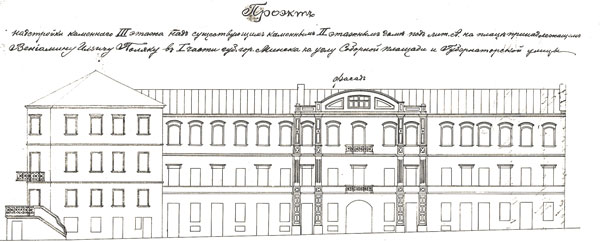 Проэктъ
надстройки каменнаго III этажа надъ существующимъ каменнымъ II этажнымъ домомъ подъ лит. А на плаце принадлежащемъ
Веніамину Поляку въ I части гор. Минска на углу Соборной площади и Губернаторской улицы
Фасадъ